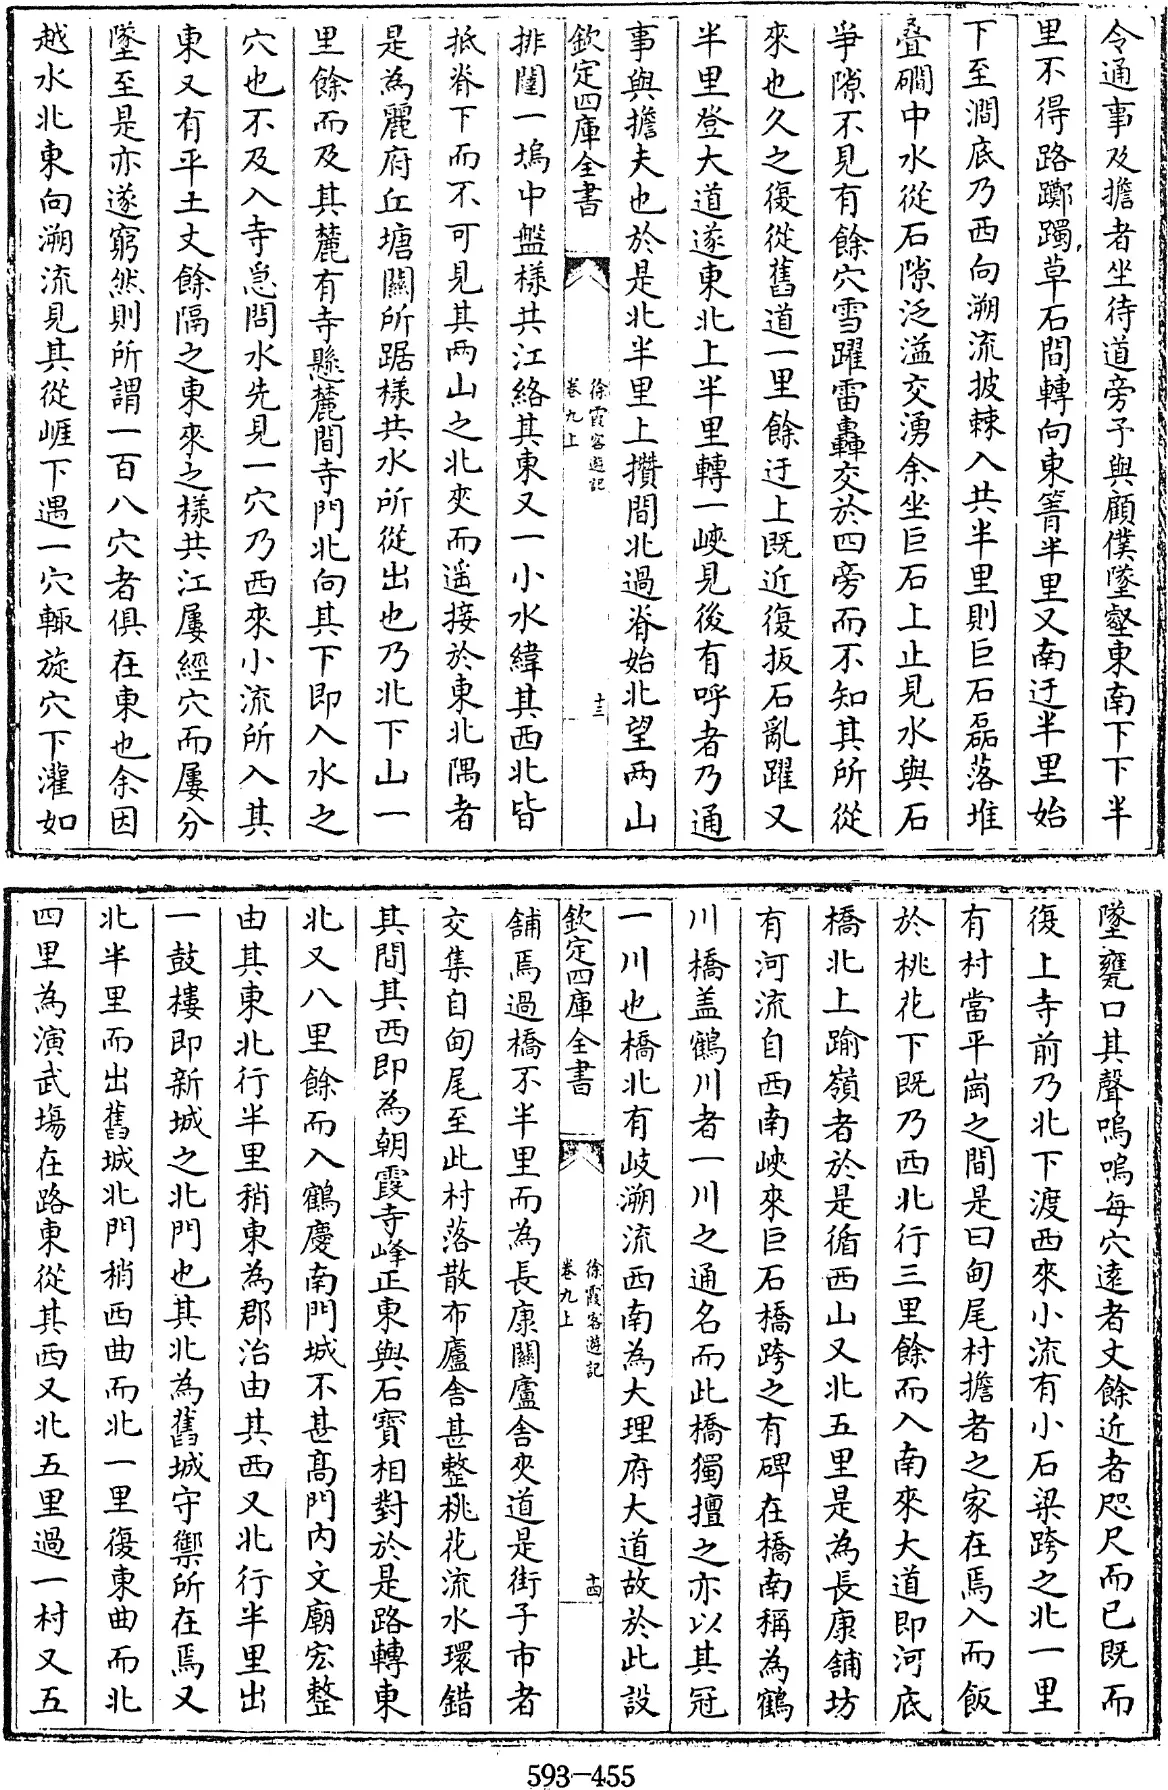 令通事及擔者坐待道旁予與顧僕墜壑東南下下半
里不得路躑躅草石間轉向東箐半里又南迂半里始
下至澗底乃西向溯流披棘入共半里則巨石磊落堆
疊磵中水從石隙泛溢交湧余坐巨石上止見水與石
爭隙不見有餘穴雪躍雷轟交於四旁而不知其所從
來也久之復從舊道一里餘迂上既近復扳石亂躍又
半里登大道遂東北上半里轉一峽見後有呼者乃通
事與擔夫也於是北半里上攢間北過脊始北望兩山
欽定四庫全書
徐霞客遊記
卷九上
十三
排闥一塢中盤樣共江絡其東又一小水緯其西北皆
抵脊下而不可見其兩山之北夾而遥接於東北隅者
是為麗府丘塘關所踞樣共水所從出也乃北下山一
里餘而及其麓有寺懸麓間寺門北向其下即入水之
穴也不及入寺急問水先見一穴乃西來小流所入其
東又有平土丈餘隔之東來之樣共江屢經穴而屢分
墜至是亦遂窮然則所謂一百八穴者俱在東也余因
越水北東向溯流見其從崕下遇一穴輙旋穴下灌如
墜甕口其聲嗚嗚每穴遠者丈餘近者咫尺而已既而
復上寺前乃北下渡西來小流有小石梁跨之北一里
有村當平崗之間是曰甸尾村擔者之家在焉入而飯
於桃花下既乃西北行三里餘而入南來大道即河底
橋北上踰嶺者於是循西山又北五里是為長康舖坊
有河流自西南峽來巨石橋跨之有碑在橋南稱為鶴
川橋盖鶴川者一川之通名而此橋獨擅之亦以其冠
一川也橋北有岐溯流西南為大理府大道故於此設
欽定四庫全書
徐霞客遊記
卷九上
十四
舖焉過橋不半里而為長康關廬舍夾道是街子市者
交集自甸尾至此村落散布廬舍甚整桃花流水環錯
其間其西即為朝霞寺峰正東與石寶相對於是路轉東
北又八里餘而入鶴慶南門城不甚高門內文廟宏整
由其東北行半里稍東為郡治由其西又北行半里出
一鼓樓即新城之北門也其北為舊城守禦所在焉又
北半里而出舊城北門稍西曲而北一里復東曲而北
四里為演武塲在路東從其西又北五里過一村又五
593-455